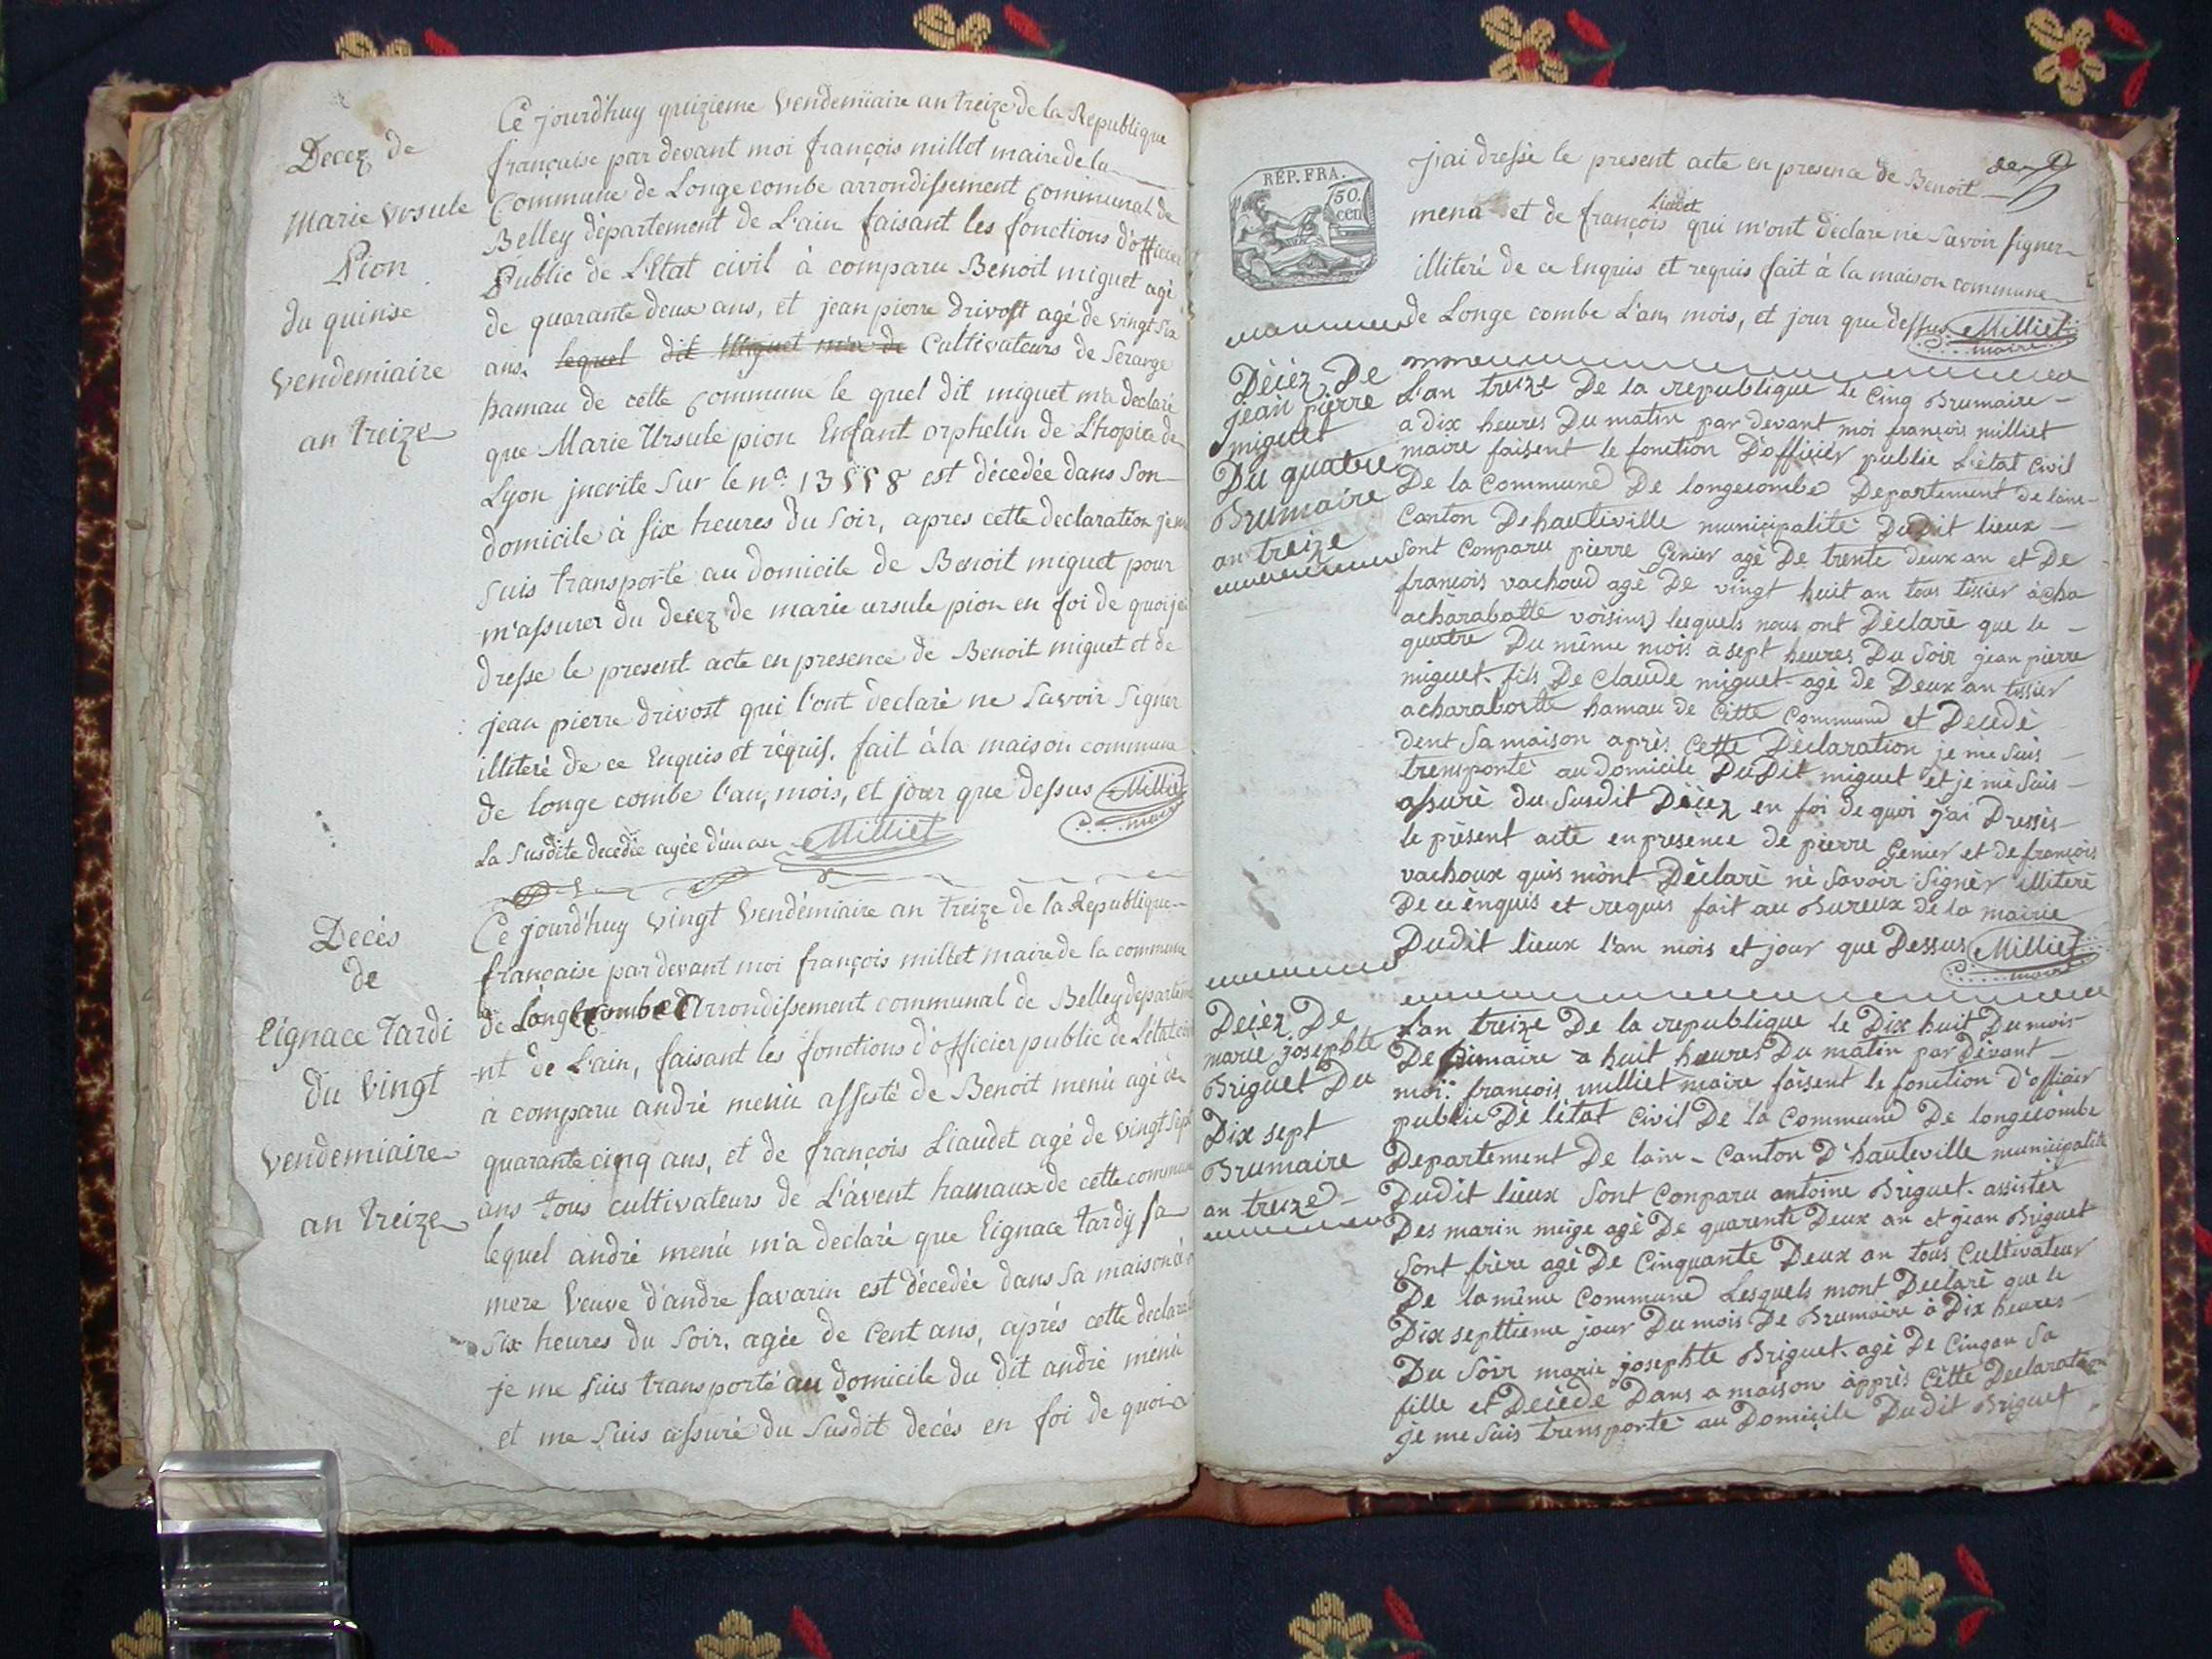 Decez de
Marie Ursule
Pion
du quinse
vendemiaire
an treize
Ce jourd'huy quizieme vendemiaire an treize de la Republique
francaise par devant moi françois millet maire de la
Commune de Longe combe arrondissement communal de
Belley département de L'ain faisant les fonctions d'officier
Public de L'Etat civil à comparu Benoit miguet agé
de quarante deux ans, et jean pierre Drivost agé de vingt six
ans. lequel dit Miguet m'a de Cultivateurs de Serarge
hamau de cette commune le quel dit miguet m'a declaré
que Marie Ursule pion Enfant orphelin de L'hopice de
Lyon jncrite sur le n.o 13558 est décedée dans son
domicile à six heures du soir, apres cette declaration je me
suis transporté au domicile de Benoit miguet pour
m'assurer du decez de marie ursule pion en foi de quoi j'ai
dresse le present acte en presence de Benoit miguet et de
jean pierre drivost qui l'ont declaré ne savoir signer
illiteré de ce Enquis et réquis. fait à la maison commune
de longe combe l'an, mois, et jour que dessus Milliet
maire
La susdite decedée agée d'un an Milliet
Decés
de
Eignace Tardi
du vingt
vendemiaire
an treize
Ce jourd'huy vingt vendémiaire an treize de la République
francaise par devant moi françois millet maire de la commune
de Longecombe Arrondissement communal de Belley departeme
-nt de L'ain, faisant les fonctions d'officier public de L'état civil
à comparu andré menü assisté de Benoit menü agé de
quarante cinq ans, et de françois Liaudet agé de vingt sept
ans tous cultivateurs de L'avent hamaux de cette commune
lequel andré menü m'a declaré que Eignace tardy sa
mere veuve d'andre savarin est décedée dans sa maison à
six heures du soir, agée de cent ans, aprés cette declarat
je me suis transporté au domicile du dit andré menü
et me suis assuré du susdit decés en foi de quoi
REP. FRA.
50.
cen
j'ai dressé le present acte en presence de Benoit
mena et de françois liodet qui m'ont declaré ne savoir signer
illiteré de ce Enquis et requis fait à la maison commune
de Longe combe L'an, mois, et jour que dessus Milliet
maire
Décéz De
jean pierre
miguet
Du quatre
Brumaire
an treize
L'an treize De la republique le Cinq Brumaire
a dix heures Du matin par devant moi françois milliet
maire faisent le fonction D'officier public L'état Civil
De la Commune De longecombe Departement de lain
Canton Dehauteville municipalité Dudit lieux
sont Conparu pierre Genier agé De trente deux an et De
françois vachoud agé De vingt huit an tous tissier àcha
acharabotte voisins) lesquels nous ont Déclaré que le
quatre Du même mois à sept heures Du soir jean pierre
miguet fils De claude miguet agé de Deux an tissier
acharabotte hamau de Cette Commune et Decedé
dent sa maison après Cette Déclaration je me suis
tremsporté au domicile Dudit miguet et je me suis
assuré du susdit Décéz en foi de quoi j'ai Dressés
le présent acte enpresence de pierre Genier et de françois
vachoux quis m'ont Déclaré né savoir signér illiteré
De ce enquis et requis fait au Bureux de la mairie
Dudit lieux l'an mois et jour que Dessus Milliet
maire
Decéz De
marie josephte
Briguet Du
Dix sept
Brumaire
an treize
L'an treize De la republique le Dix huit Du mois
De Brimaire a huit heures Du matin par Devant
moi françois milliet maire faisent le fonction d'officier
public De létat Civil De la Commune De longecombe
Departement De lain - Canton D'hauteville municipalité
Dudit lieux sont Conparu antoine Briguet assister
Des marin meige agé De quarente Deux an et jean Briguet
sont frère agé De Cinquante Deux an tous Cultivateur
De la même Commune Lesquels mont Declaré que le
Dix septtieme jour Du mois De Brumaire à Dix heures
Du soir marie josephte Briguet agé De Cinqan sa
fille et Decédé Dans a maison apprés Cette Declaration
je me suis trensporté au Domicile Dudit Briguet